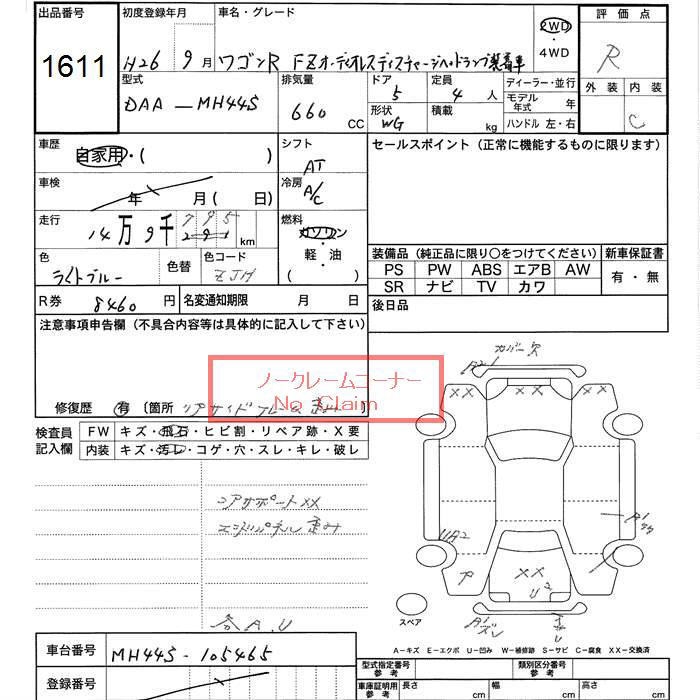 出品番号
1611
初度登録年月
H26 9月
車名・グレード
ワゴンR FZオーディオレスディスチャージヘッドランプ装着車
2WD
・
4WD
評価点
R
外装 内装
C
型式
DAA-MH44S
排気量
660
CC
ドア
5
定員
4人
形状
WG
積載
kg
ディーラー・並行
モデル年式 年
ハンドル 左・右
車歴
自家用・( )
シフト
AT
車検
年 月( 日)
冷房
A/C
走行
14万9千
km
燃料
ガソリン
・
軽・油
( )
色
ライトブルー
色替
色コード
ZJH
R券
8460円
名変通知期限 月 日
セールスポイント(正常に機能するものに限ります)
装備品(純正品に限り○をつけてください)
新車保証書
PS PW ABS エアB AW
SR ナビ TV カワ
有・無
後日品
注意事項申告欄(不具合内容等は具体的に記入して下さい)
ノークレームコーナー
No Claim
修復歴 有〔箇所 リアサイドフレーム歪み
検査員
記入欄
FW キズ・飛石・ヒビ割・リペア跡・X要
内装 キズ・汚レ・コゲ・穴・スレ・キレ・破レ
コアサポートXX
エンドパネル歪み
各A.U
カバー欠
A1
XX XX
UA2
ア
XX
U2
A1
スペア
A-キズ E-エクボ U-凹み W-補修跡 S-サビ C-腐食 XX-交換済
車台番号
MH44S-105465
登録番号
型式指定番号
参考
類別区分番号
参考
車庫証明用
参考
長さ cm
幅 cm
高さ cm